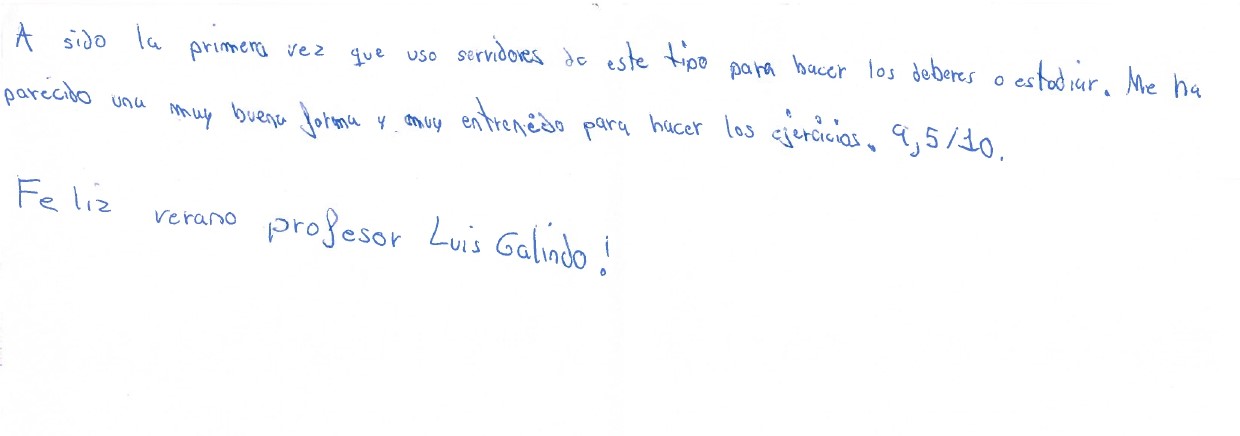 A sido la primera vez que uso servidores de este tipo para hacer los deberes o estudiar. Me ha
parecido una muy buena forma y muy entrenedo para hacer los ejercicios. 9,5/10.
Feliz verano profesor Luis Galindo!